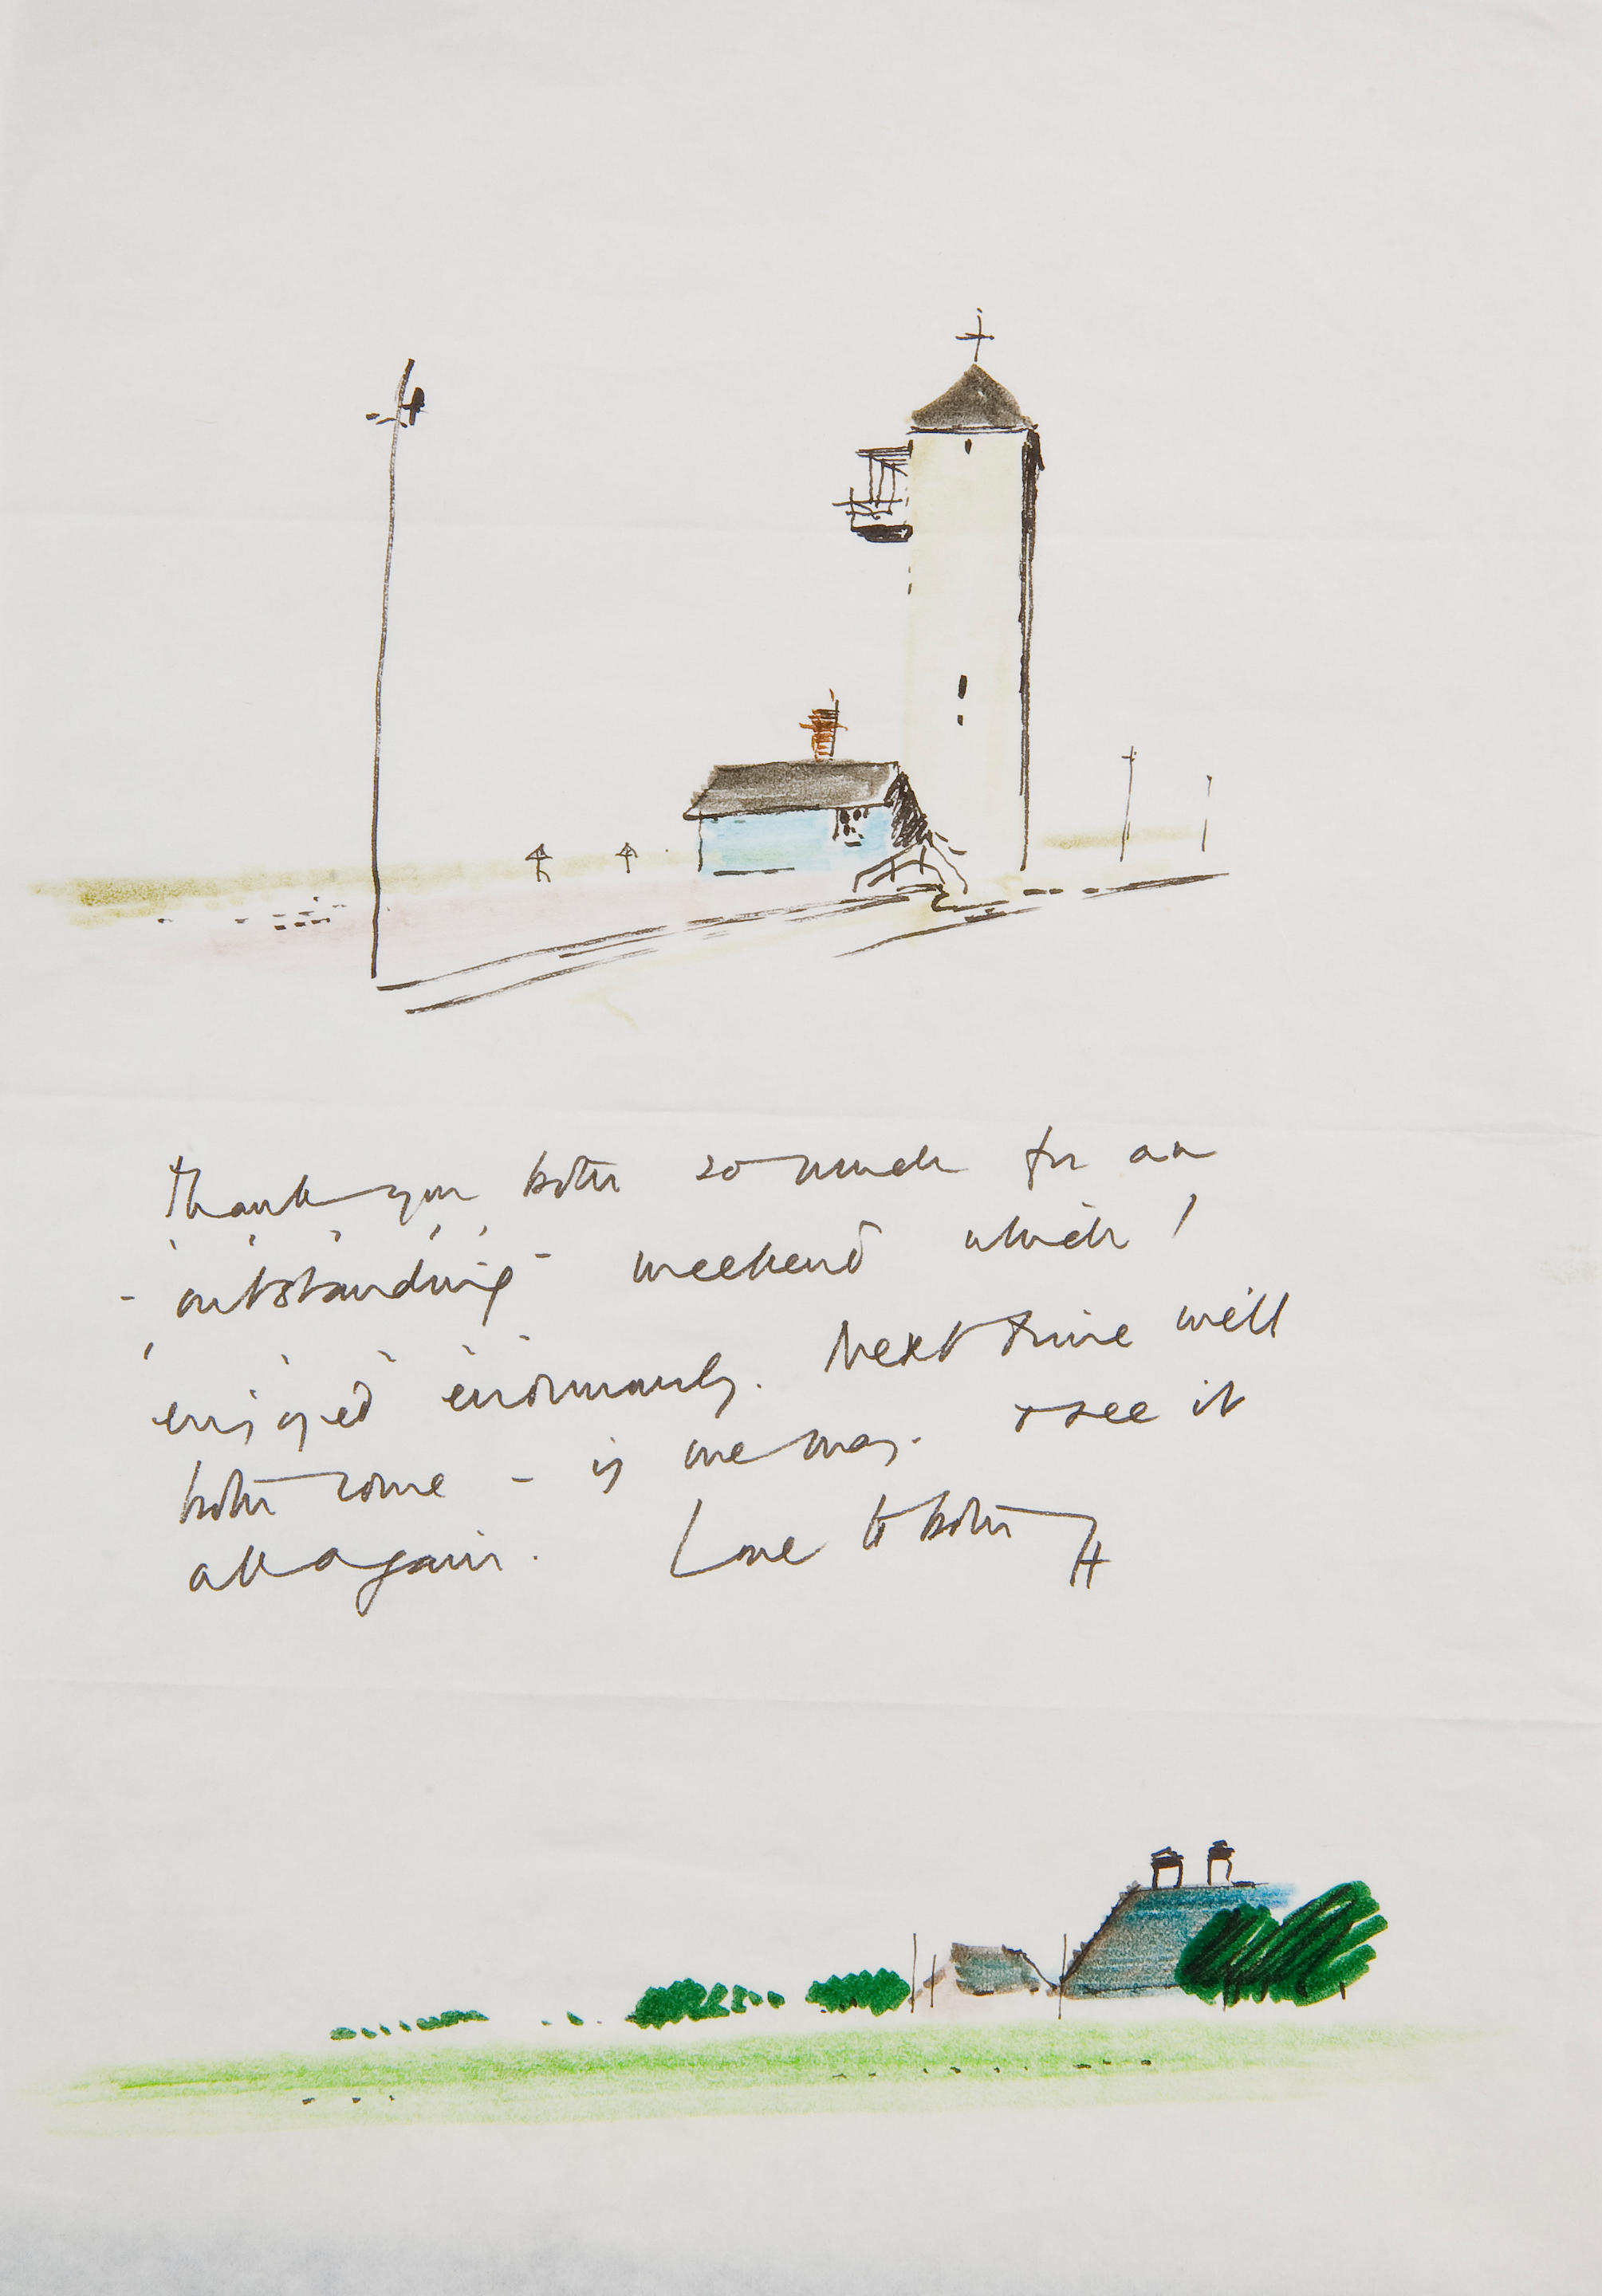 Thank you both so much for an
- 'outstanding' weekend which I
enjoyed enormously. Next time we'll
both come - if we may. + see it
all again. Love to both H